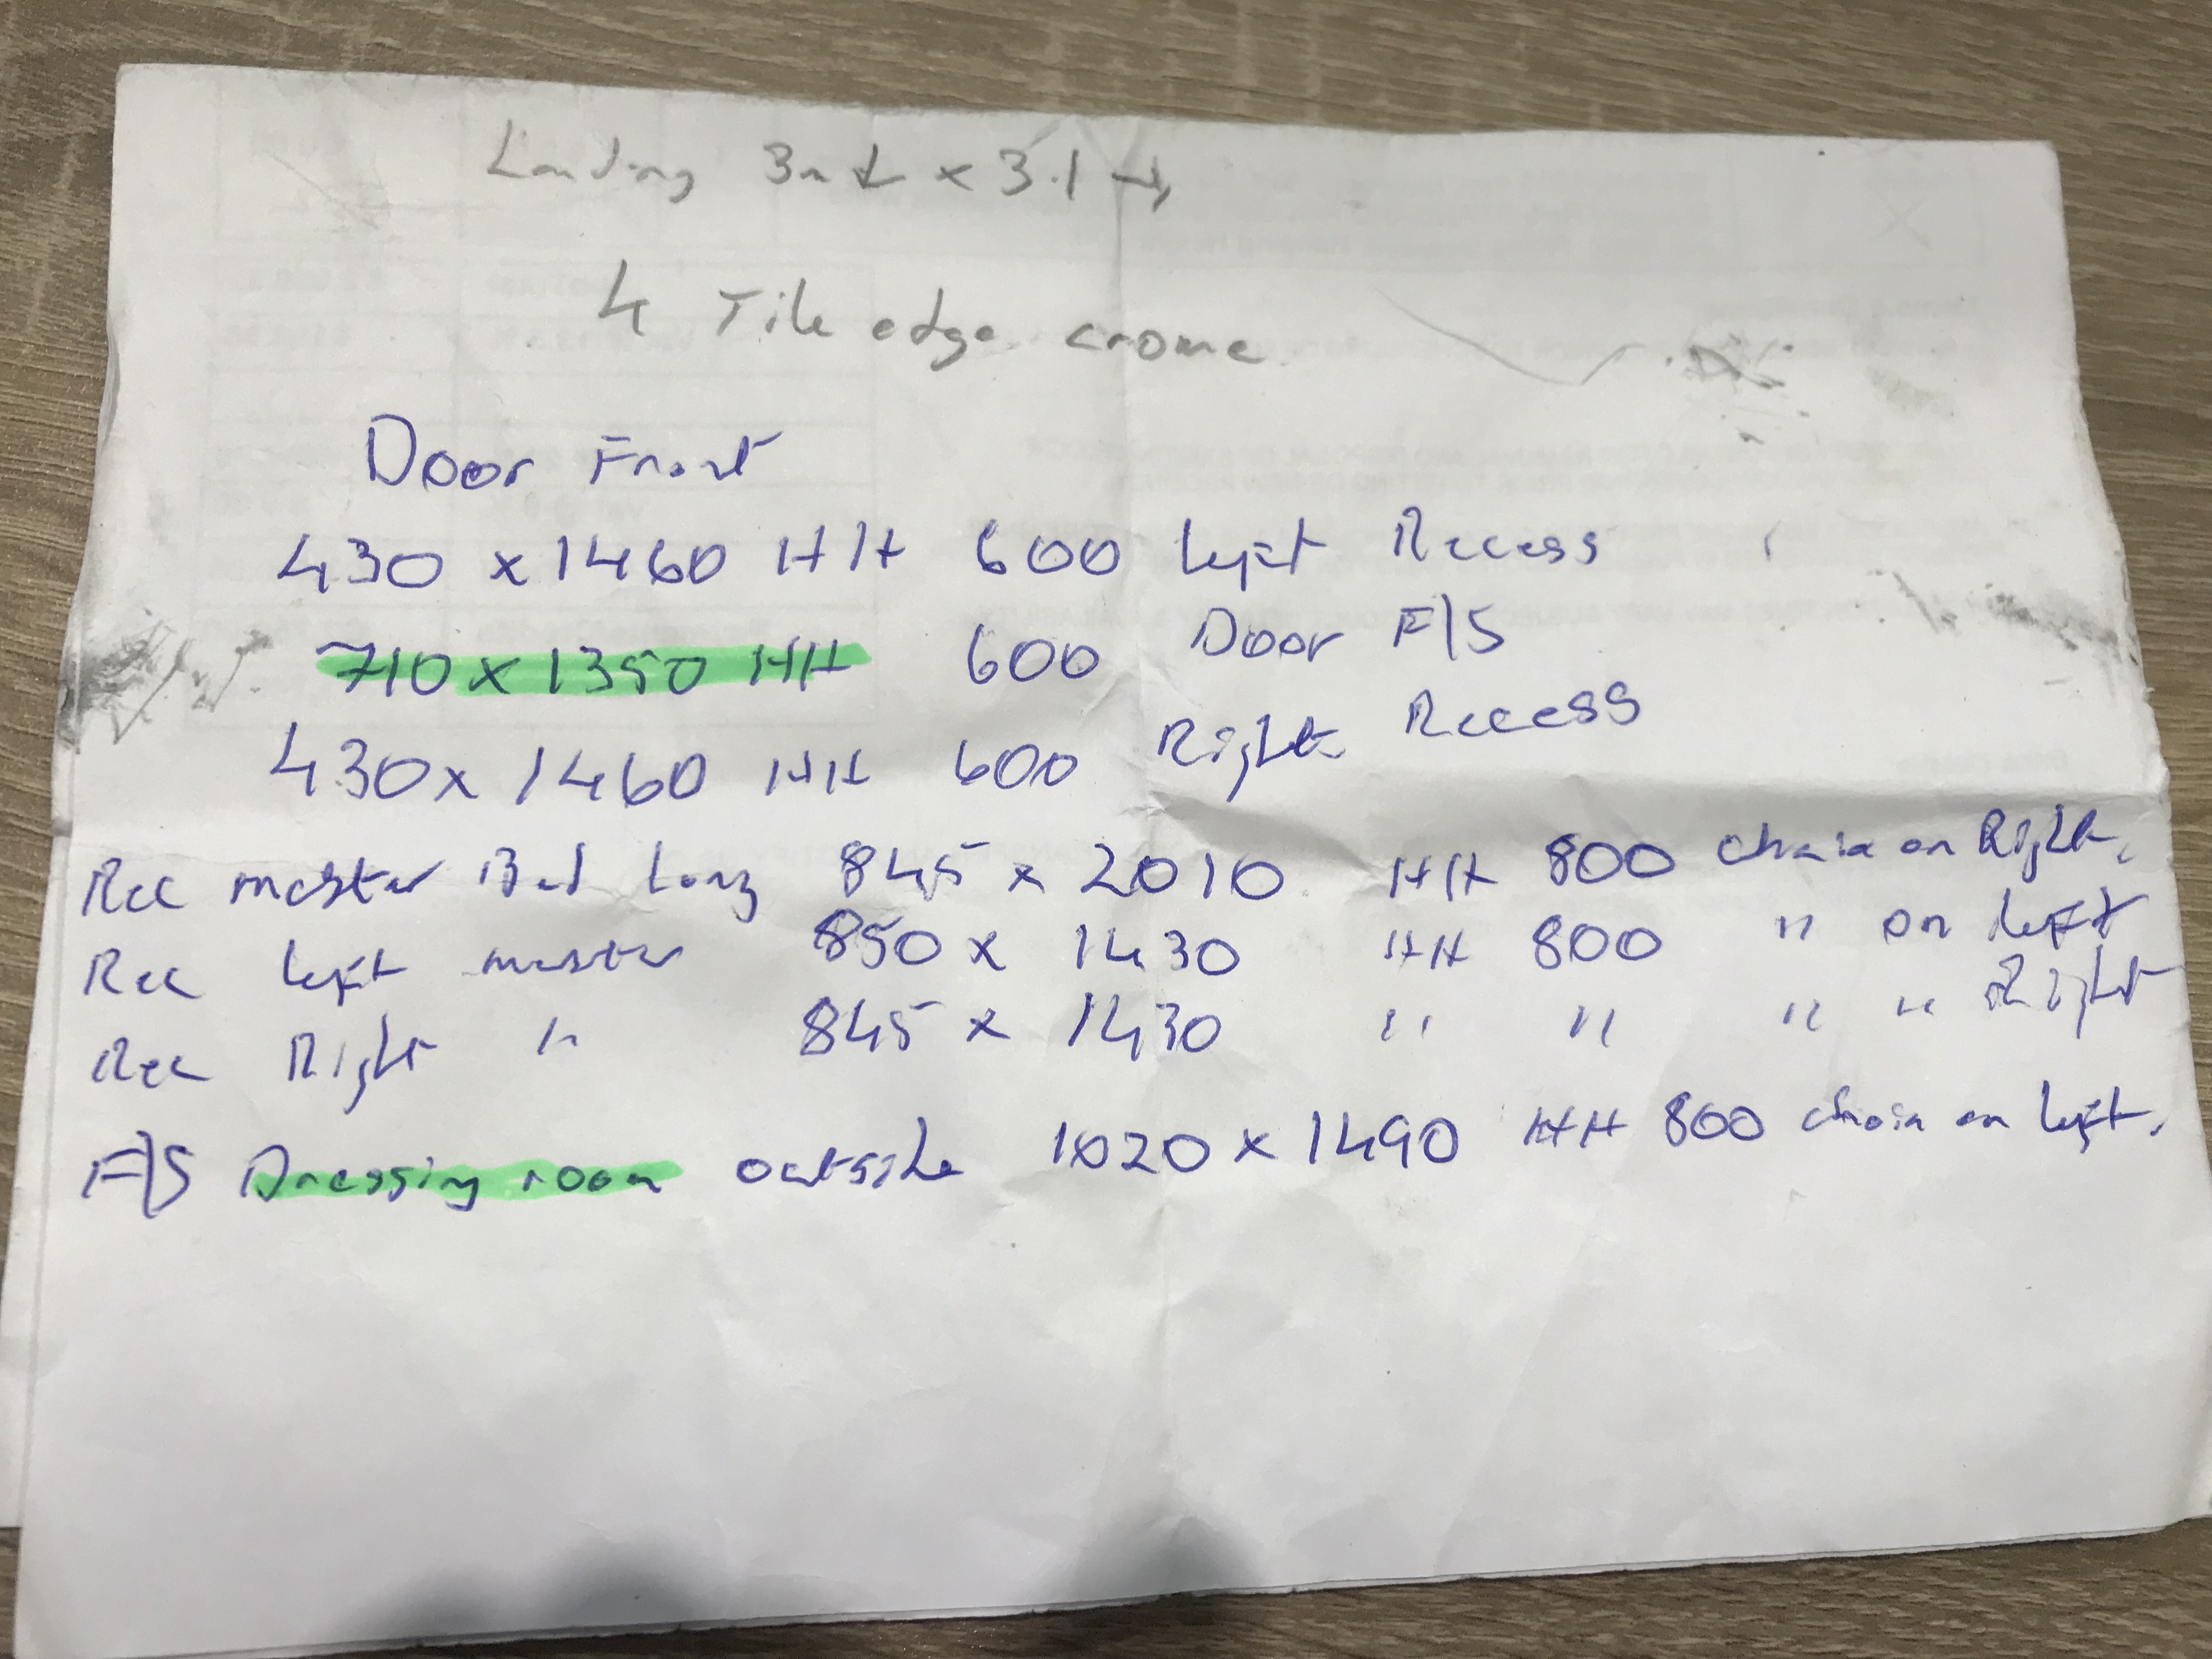 Landing 3m ↓ x 3.1 →
4 Tile edge crome
Door Front
430 x 1460 HH 600 Left Recess
710 x 1350 HH 600 Door F/S
430 x 1460 HH 600 Right Recess
Rec master Bed Long 845 x 2010 HH 800 chain on Right.
Rec Left master 850 x 1430 HH 800 " on Left
Rec Right " 845 x 1430 " " " " Right
F/S Dressing room outside 1020 x 1490 HH 800 chain on Left.